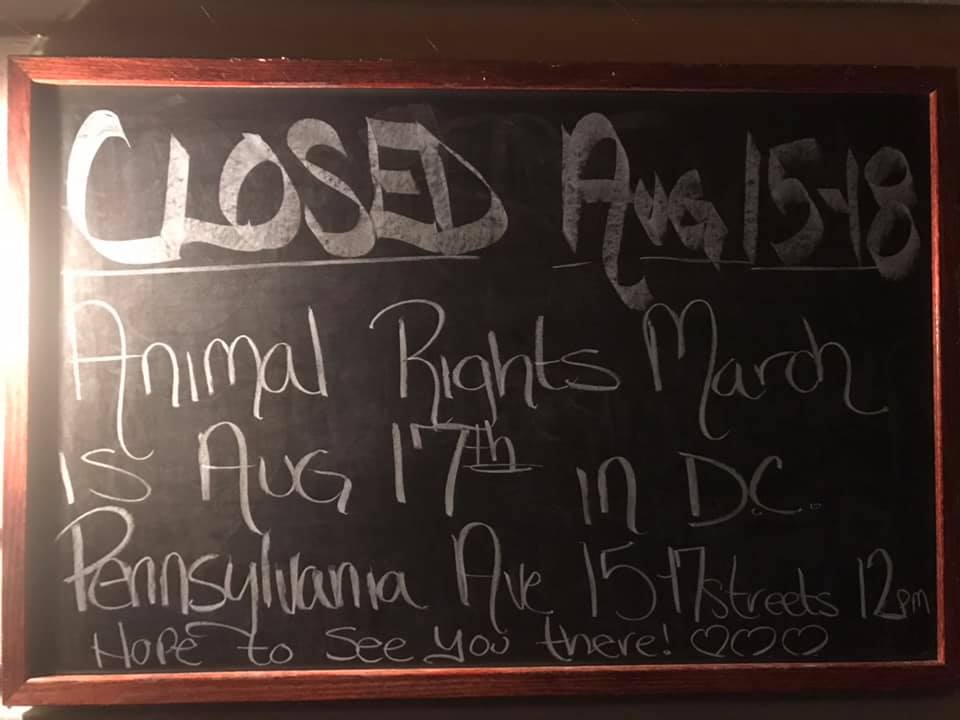 CLOSED Aug 15-18
Animal Rights March
is Aug 17th in D.C.
Pennsylvania Ave 15-17 streets 12pm
Hope to See you there! ♡♡♡